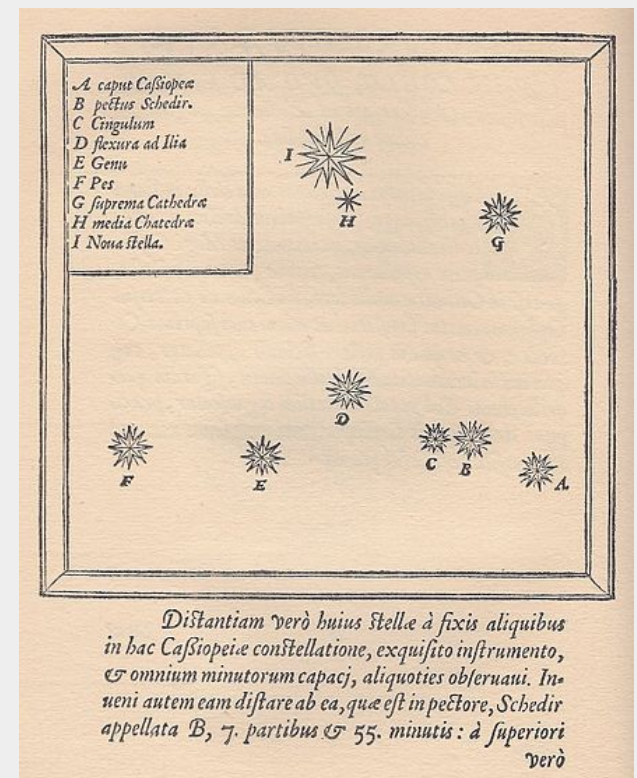 A caput Caſsiopeæ
B pectus Schedir.
C Cingulum
D flexura ad Ilia
E Genu
F Pes
G ſuprema Cathedræ
H media Chatedræ
I Noua ſtella.
I
H
G
D
F
E
C
B
A
Diſtantiam verò huius ſtellæ à fixis aliquibus
in hac Caſsiopeiæ conſtellatione, exquiſito inſtrumento,
& omnium minutorum capacj, aliquoties obſeruaui. In-
ueni autem eam diſtare ab ea, quæ eſt in pectore, Schedir
appellata B, 7. partibus & 55. minutis: à ſuperiori
verò